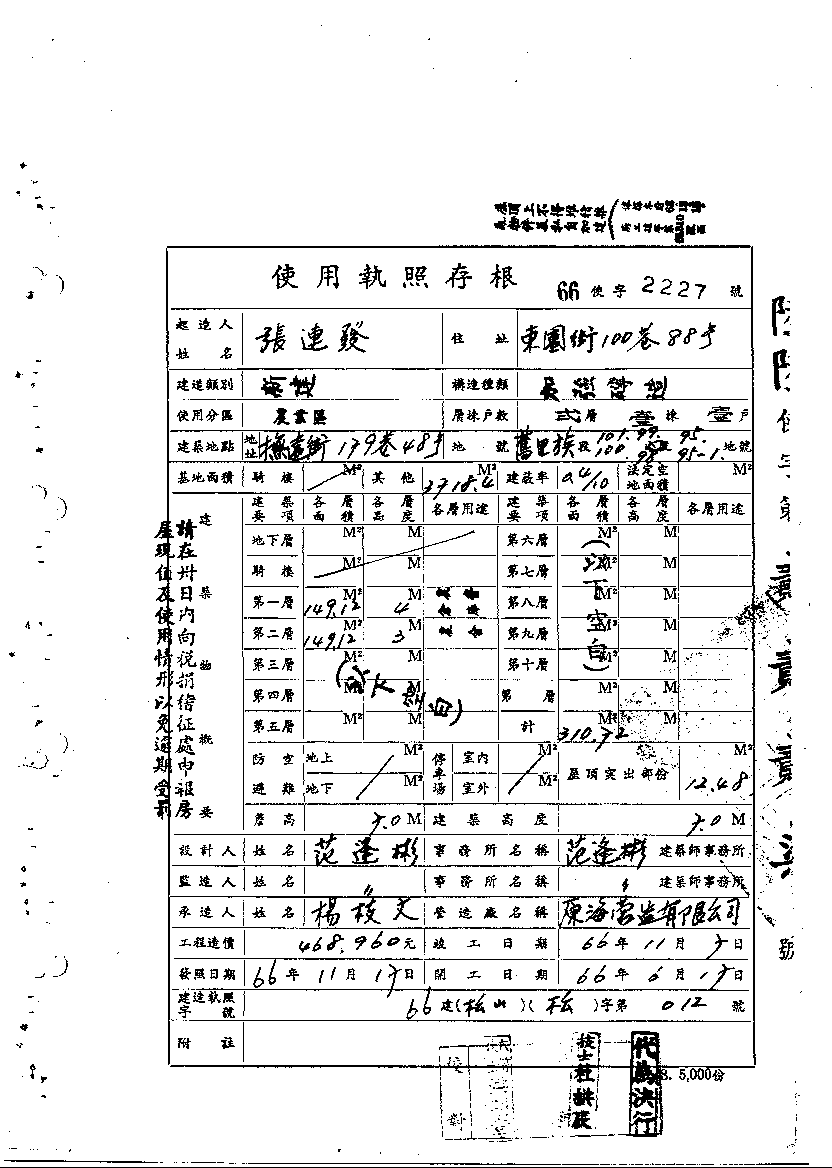 使用執照存根 66 使字 2227 號
起造人姓名 張連發 住址 東園街100巷88号
建造類別 新建 構造種類
使用分區 農業區 層棟戶數 弍層 壹棟 壹戶
建築地點 地址 撫遠街179巷48号 地號 舊里族段 101. 99. 95. 100. 98. 95-1. 地號
基地面積 騎樓 M² 其他 3718.4 M² 建蔽率 0.4/10 法定空地面積 M²
建築要項 各層面積 各層高度 各層用途 建築要項 各層面積 各層高度 各層用途
地下層 M² M 第六層 M² M
騎樓 M² M 第七層 M² M
第一層 149.12 M² 4 M 第八層 M² M
第二層 149.12 M² 3 M 第九層 M² M
第三層 M² M 第十層 M² M
第四層 M² M 第 層 M² M
第五層 M² M 計 310.72 M² M
(以下空白)
(以下空白)
建築物概要
防空避難 地上 M² 地下 M² 停車場 室內 M² 室外 M² 屋頂突出部份 12.48 M²
簷高 7.0 M 建築高度 7.0 M
設計人 姓名 范逢彬 事務所名稱 范逢彬 建築師事務所
監造人 姓名 〃 事務所名稱 〃 建築師事務所
承造人 姓名 楊枝文 營造廠名稱 東海營造有限公司
工程造價 468,960元 竣工日期 66年11月7日
發照日期 66年11月17日 開工日期 66年6月17日
建造執照字號 66建(松山)(松)字第012號
附註
請在卅日內向稅捐稽征處申報房
屋現值及使用情形以免逾期受罰
代為決行
5,000份
號